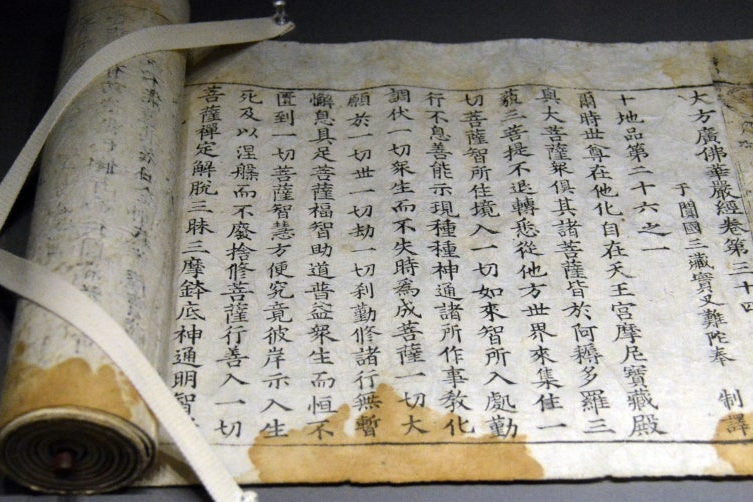 大方廣佛華嚴經卷第三十四
于闐國三藏實叉難陀奉 制譯
十地品第二十六之一
爾時世尊在他化自在天王宮摩尼寶藏殿
與大菩薩衆俱其諸菩薩皆於阿耨多羅三
藐三菩提不退轉悉從他方世界來集住一
切菩薩智所住境入一切如來智所入處勤
行不息善能示現種種神通諸所作事教化
調伏一切衆生而不失時為成菩薩一切大
願於一切世一切劫一切刹勤修諸行無暫
懈息具足菩薩福智助道普益衆生而恒不
匱到一切菩薩智慧方便究竟彼岸示入生
死及以涅槃而不廢捨修菩薩行善入一切
菩薩禪定解脫三昧三摩鉢底神通明智